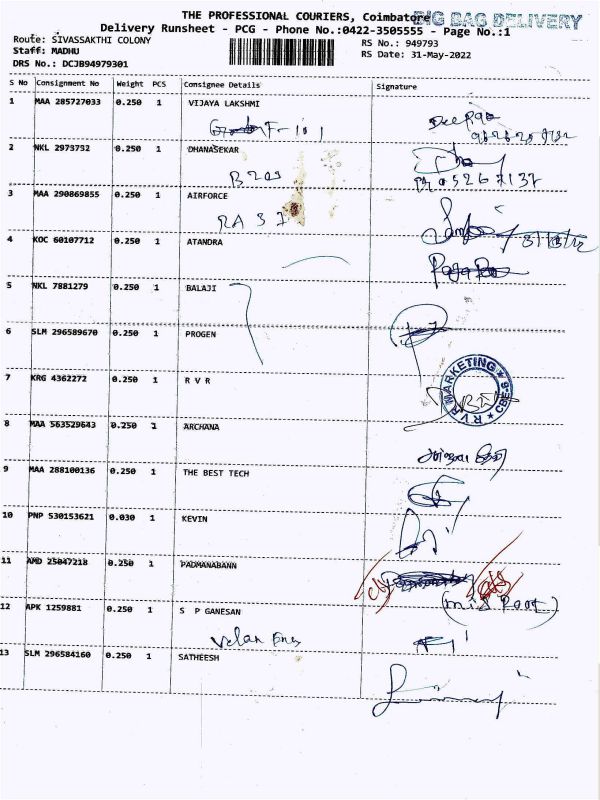 THE PROFESSIONAL COURIERS, Coimbatore
BIG BAG DELIVERY
Delivery Runsheet - PCG - Phone No.:0422-3505555 - Page No.:1
Route: SIVASSAKTHI COLONY
RS No.: 949793
Staff: MADHU
RS Date: 31-May-2022
DRS No.: DCJB94979301
S No Consignment No Weight PCS Consignee Details Signature
1 MAA 285727033 0.250 1 VIJAYA LAKSHMI
F-101
Deepa
2 NKL 2973732 0.250 1 DHANASEKAR
B 203
3 MAA 290869855 0.250 1 AIRFORCE
RA 37
4 KOC 60107712 0.250 1 ATANDRA
5 NKL 7881279 0.250 1 BALAJI
6 SLM 296589670 0.250 1 PROGEN
7 KRG 4362272 0.250 1 R V R
R V R MARKETING ★ CBE-9 ★
8 MAA 563529643 0.250 1 ARCHANA
9 MAA 288100136 0.250 1 THE BEST TECH
10 PNP 530153621 0.030 1 KEVIN
11 AMD 25047218 0.250 1 PADMANABANN
12 APK 1259881 0.250 1 S P GANESAN
(mis Root)
Velan Eng
13 SLM 296584160 0.250 1 SATHEESH